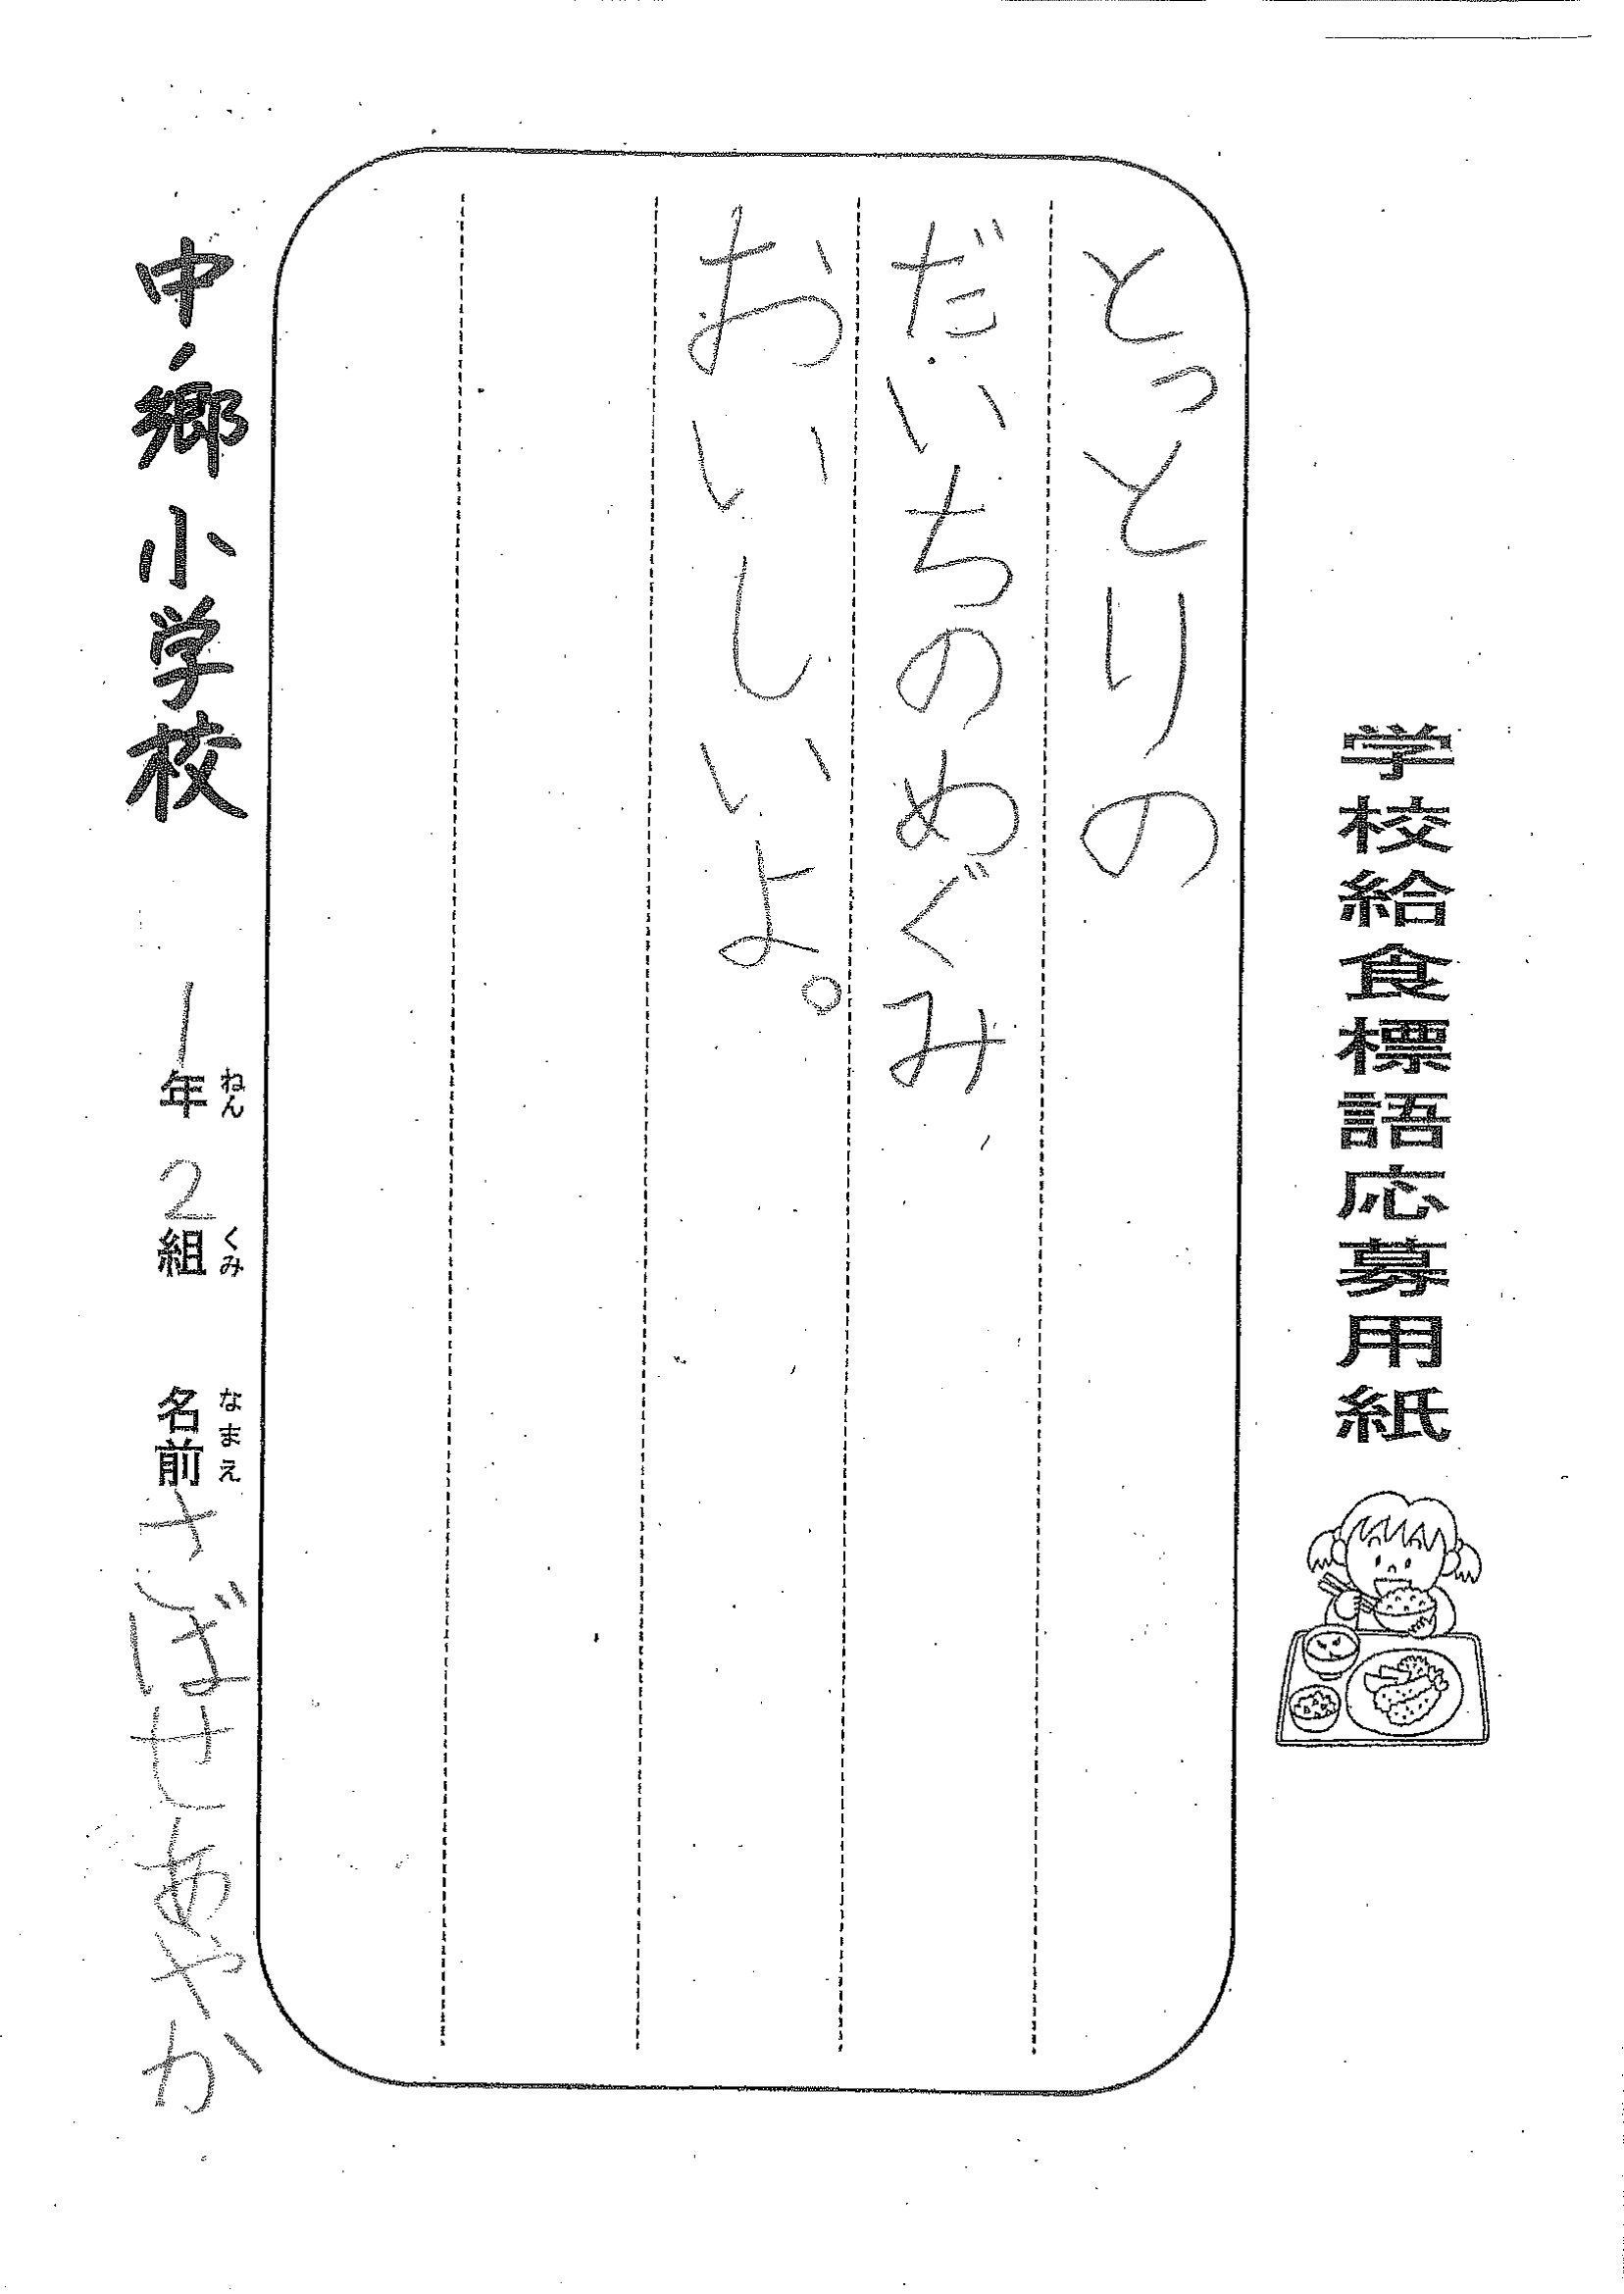 学校給食標語応募用紙
とっとりの
だいちのめぐみ
おいしいよ。
中ノ郷小学校 1年 2組 名前 さばせあやか
ねん くみ なまえ